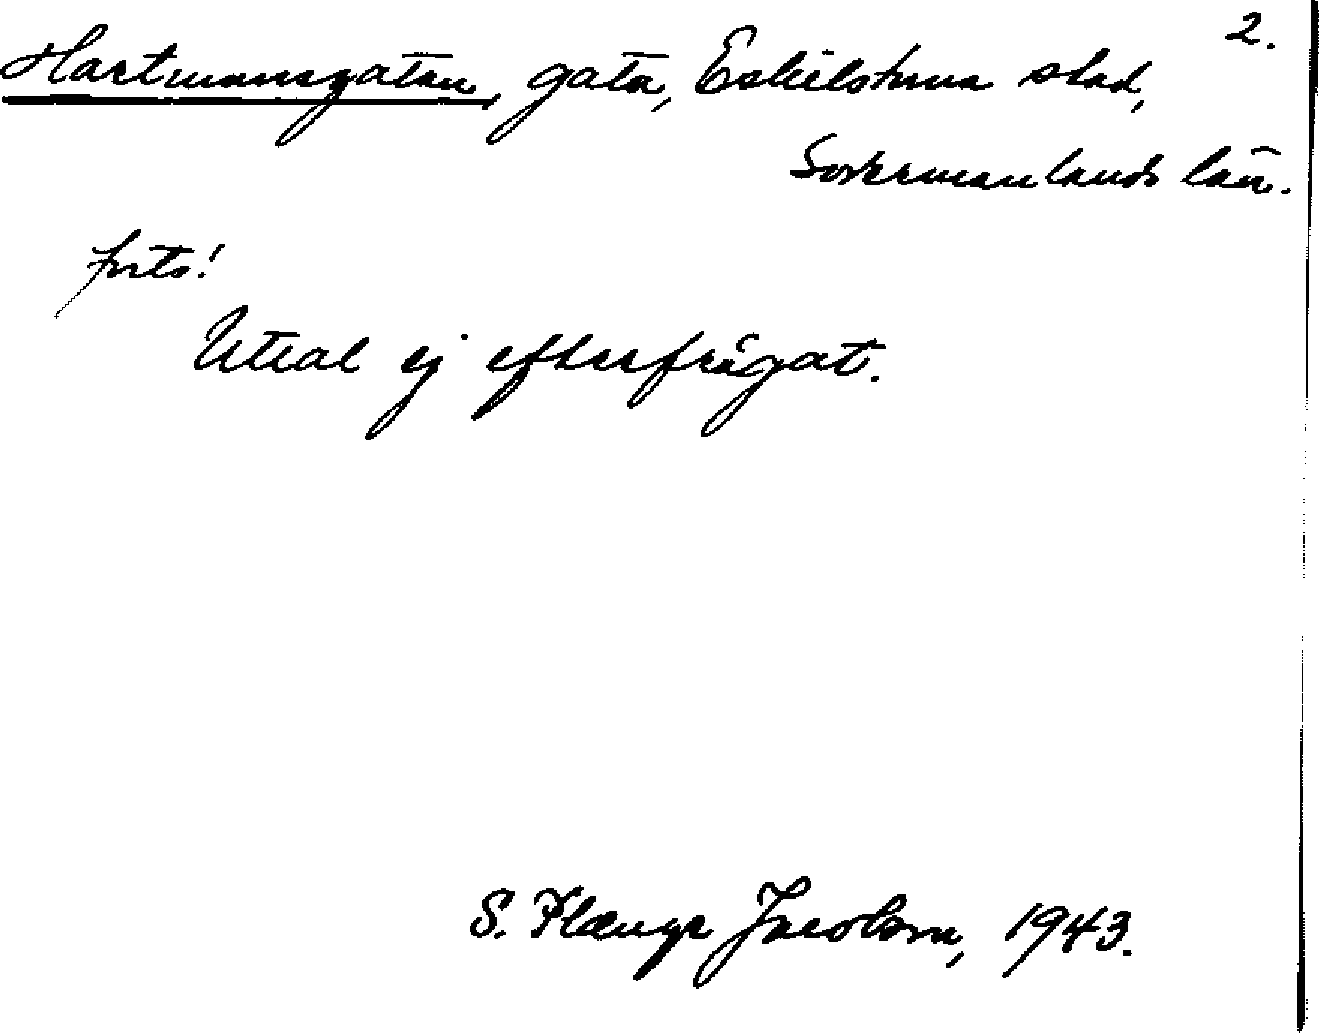 2.
Hartmansgatan, gata, Eskilstuna stad,
Södermanlands län.
forts!
Uttal ej efterfrågat.
S. Plænge Jacobson, 1943.